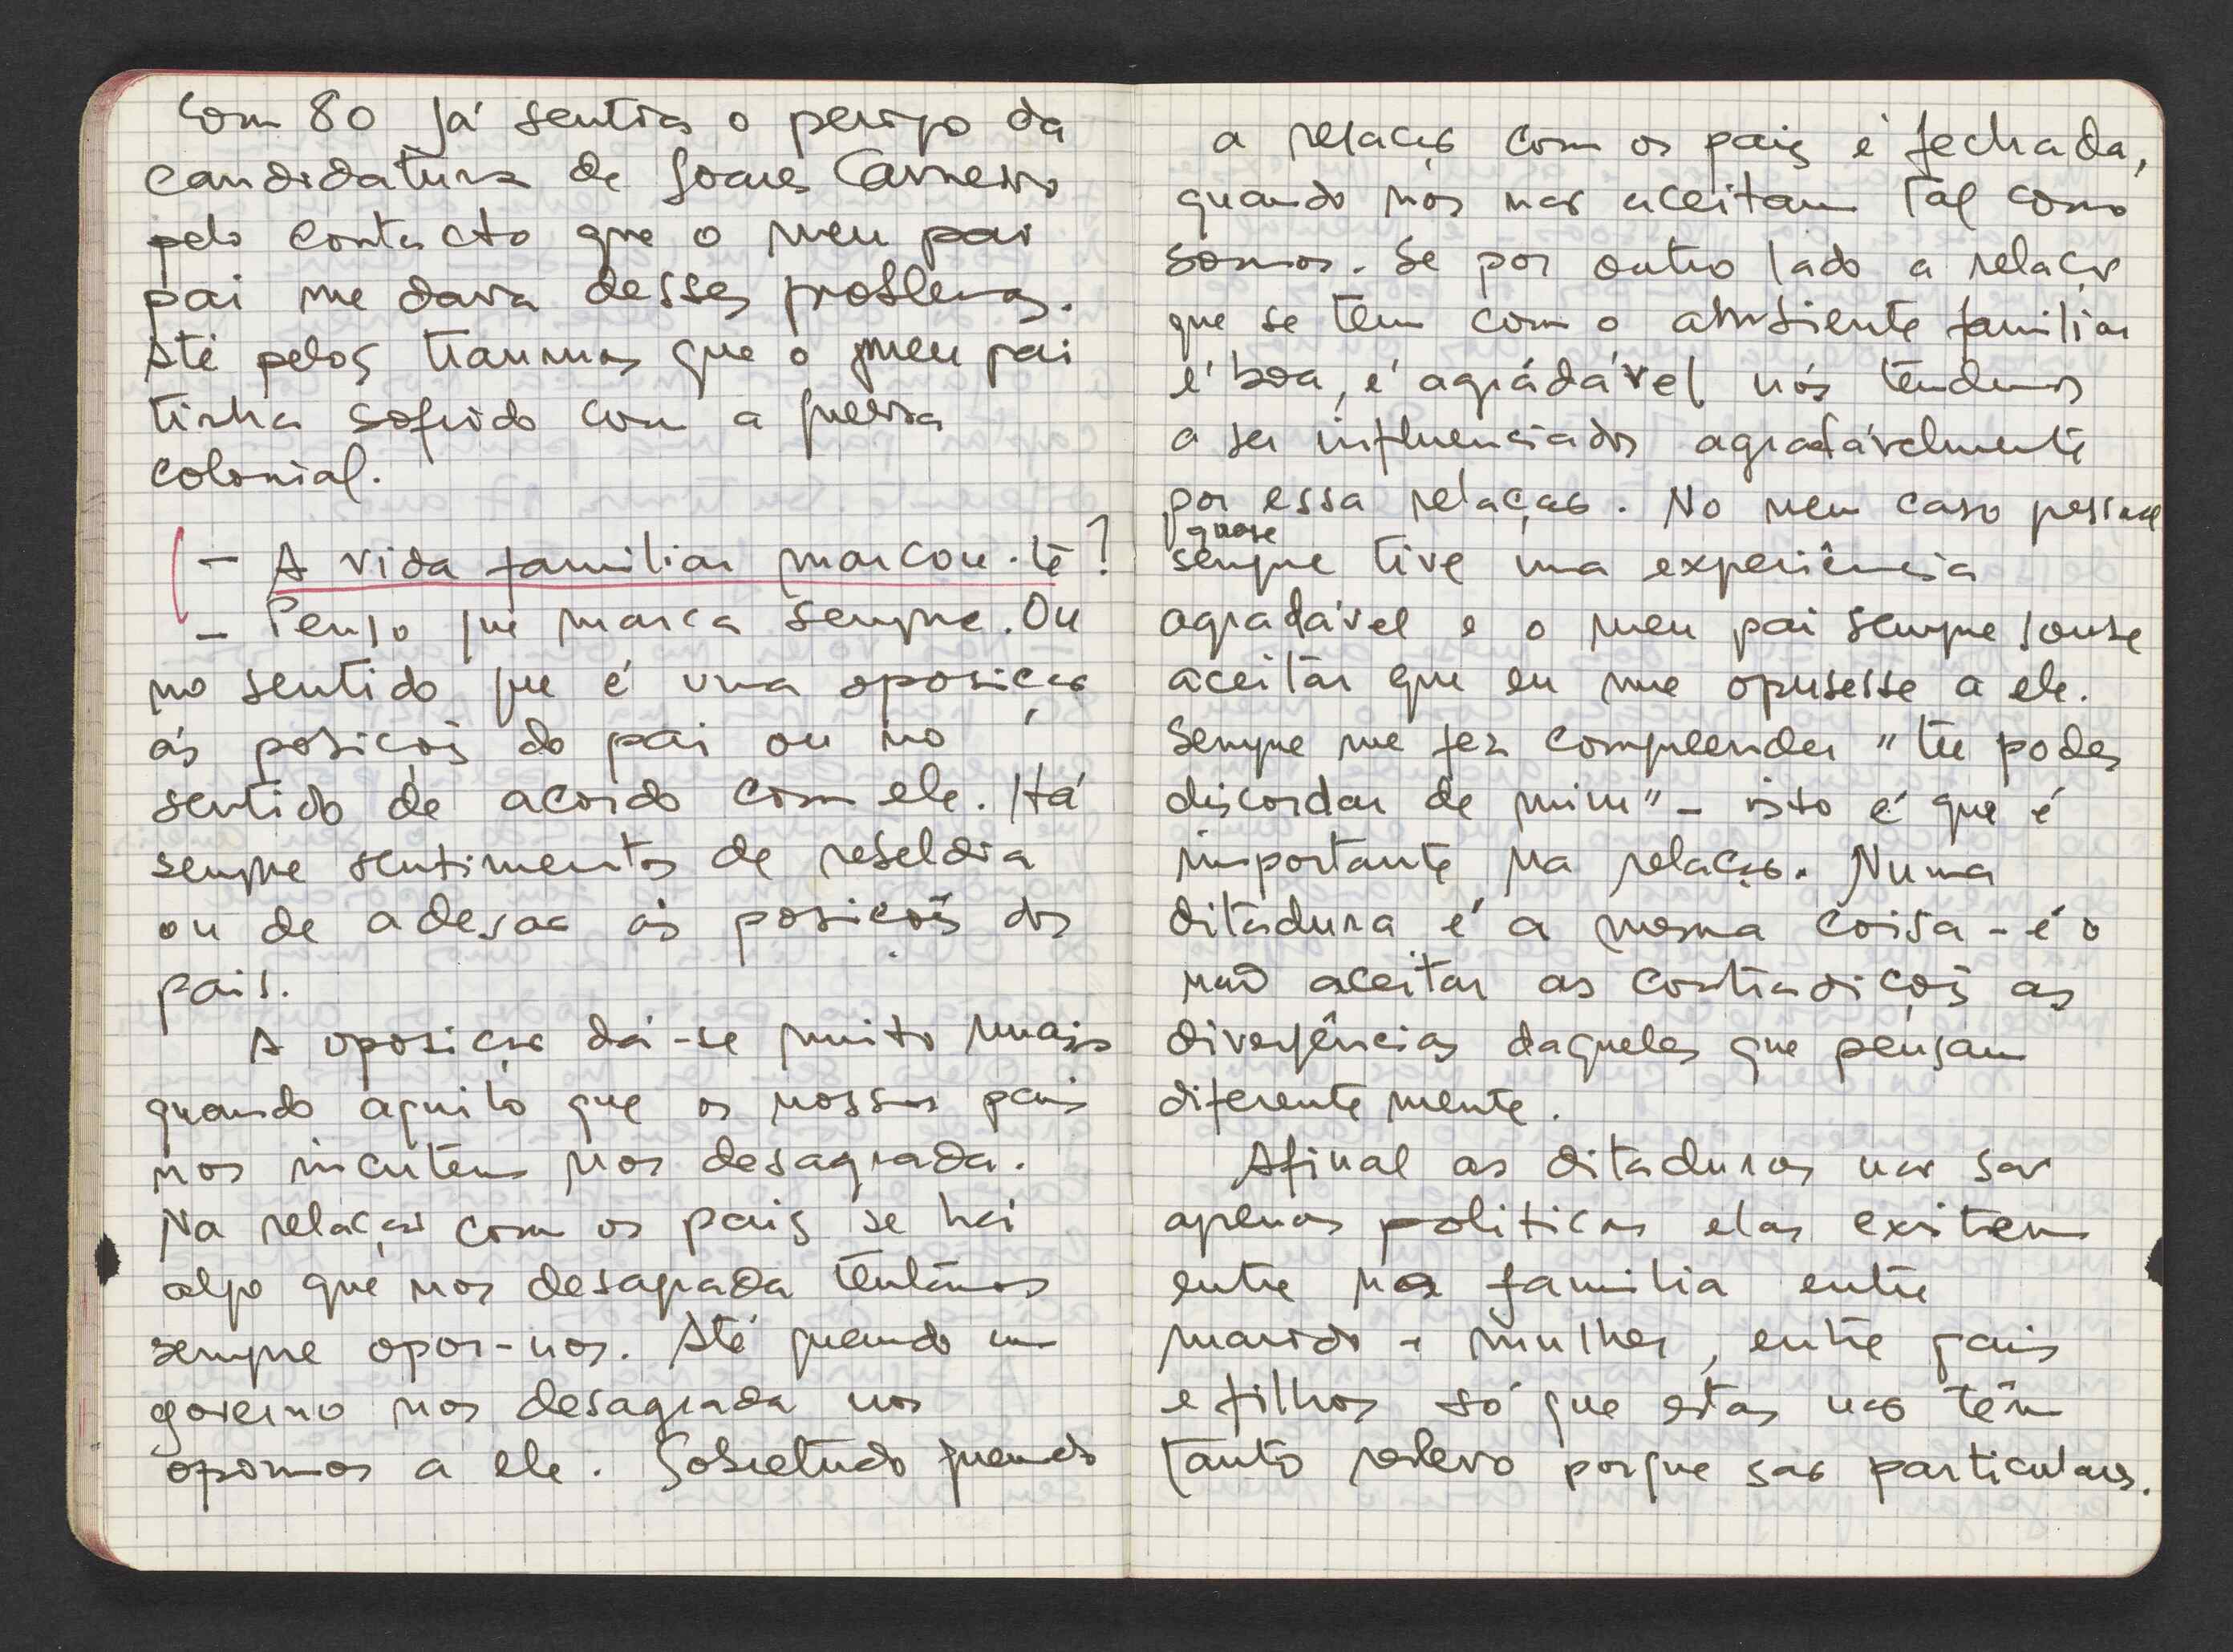 Com 80 já sentia o perigo da
candidatura de Soares Carneiro
pelo contacto que o meu pai
pai me dava desses problemas.
Até pelos traumas que o meu pai
tinha sofrido com a guerra
colonial.
- A vida familiar marcou-te?
- Penso que marca sempre. Ou
no sentido que é uma oposição
ás posições do pai ou no
sentido de acordo com ele. Há
sempre sentimentos de rebeldia
ou de adesão ás posições dos
pais.
A oposição dá-se muito mais
quando aquilo que os nossos pais
nos incutem nos desagrada.
Na relação com os pais se há
algo que nos desagrada tentamos
sempre opor-nos. Até quando um
governo nos desagrada nos
opomos a ele. Sobretudo quando
a relação com os pais é fechada,
quando nos não aceitam tal como
somos. Se por outro lado a relação
que se tem com o ambiente familiar
é boa, é agradável nós tendemos
a ser influenciados agradávelmente
por essa relação. No meu caso pessoal
quase
sempre tive uma experiência
agradável e o meu pai sempre soube
aceitar que eu me opusesse a ele.
Sempre me fez compreender "tu podes
discordar de mim" - isto é que é
importante na relação. Numa
ditadura é a mesma coisa - é o
não aceitar as contradições as
divergências daqueles que pensam
diferentemente.
Afinal as ditaduras não são
apenas politicas elas existem
entre na familia entre
marido e mulher, entre pais
e filhos só que estas não têm
tanto relevo porque são particulares.